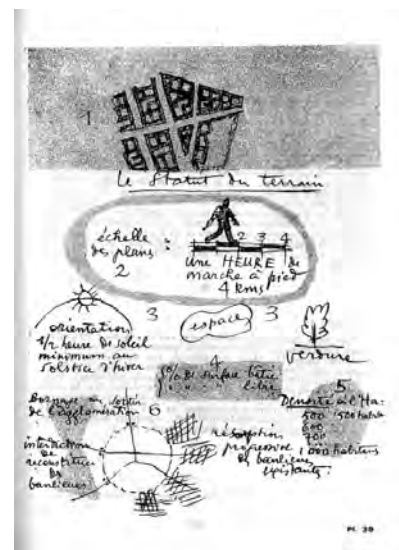 1
Le Statut du terrain
échelle
des plans :
2
2 3 4
Une HEURE de
marche à pied
4 kms
3
3
orientation
1/2 heure de soleil
minimum au
solstice d'hiver
espace
verdure
4
% de surface bâtie
libre
5
Densité à l'Ha:
500
600
700
1000 habitants
6
Bornage au
de l'agglomération
interdiction
de
reconstituer
des
banlieues
résorption
progressive
des banlieues
existantes.
Pl. 39